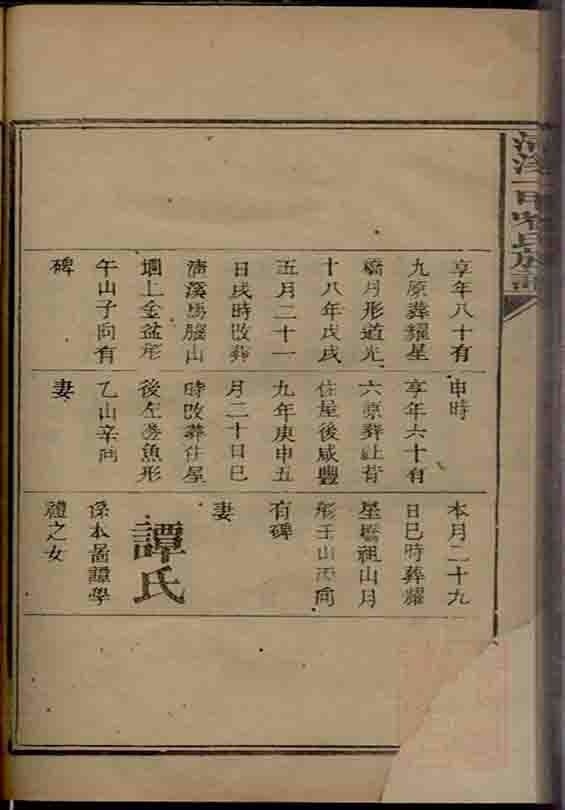 享年八十有
九原葬耀星
橋月形道光
十八年戊戌
五月二十一
日戌時改葬
清溪馬腦山
堈上金盆形
午山子向有
碑
申時
享年六十有
六原葬社背
住屋後咸豐
九年庚申五
月二十日巳
時改葬住屋
後左邊魚形
乙山辛向
妻
本月二十九
日巳時葬耀
星橋祖山月
形壬山丙向
有碑
妻
譚氏
係本啚譚學
禮之女